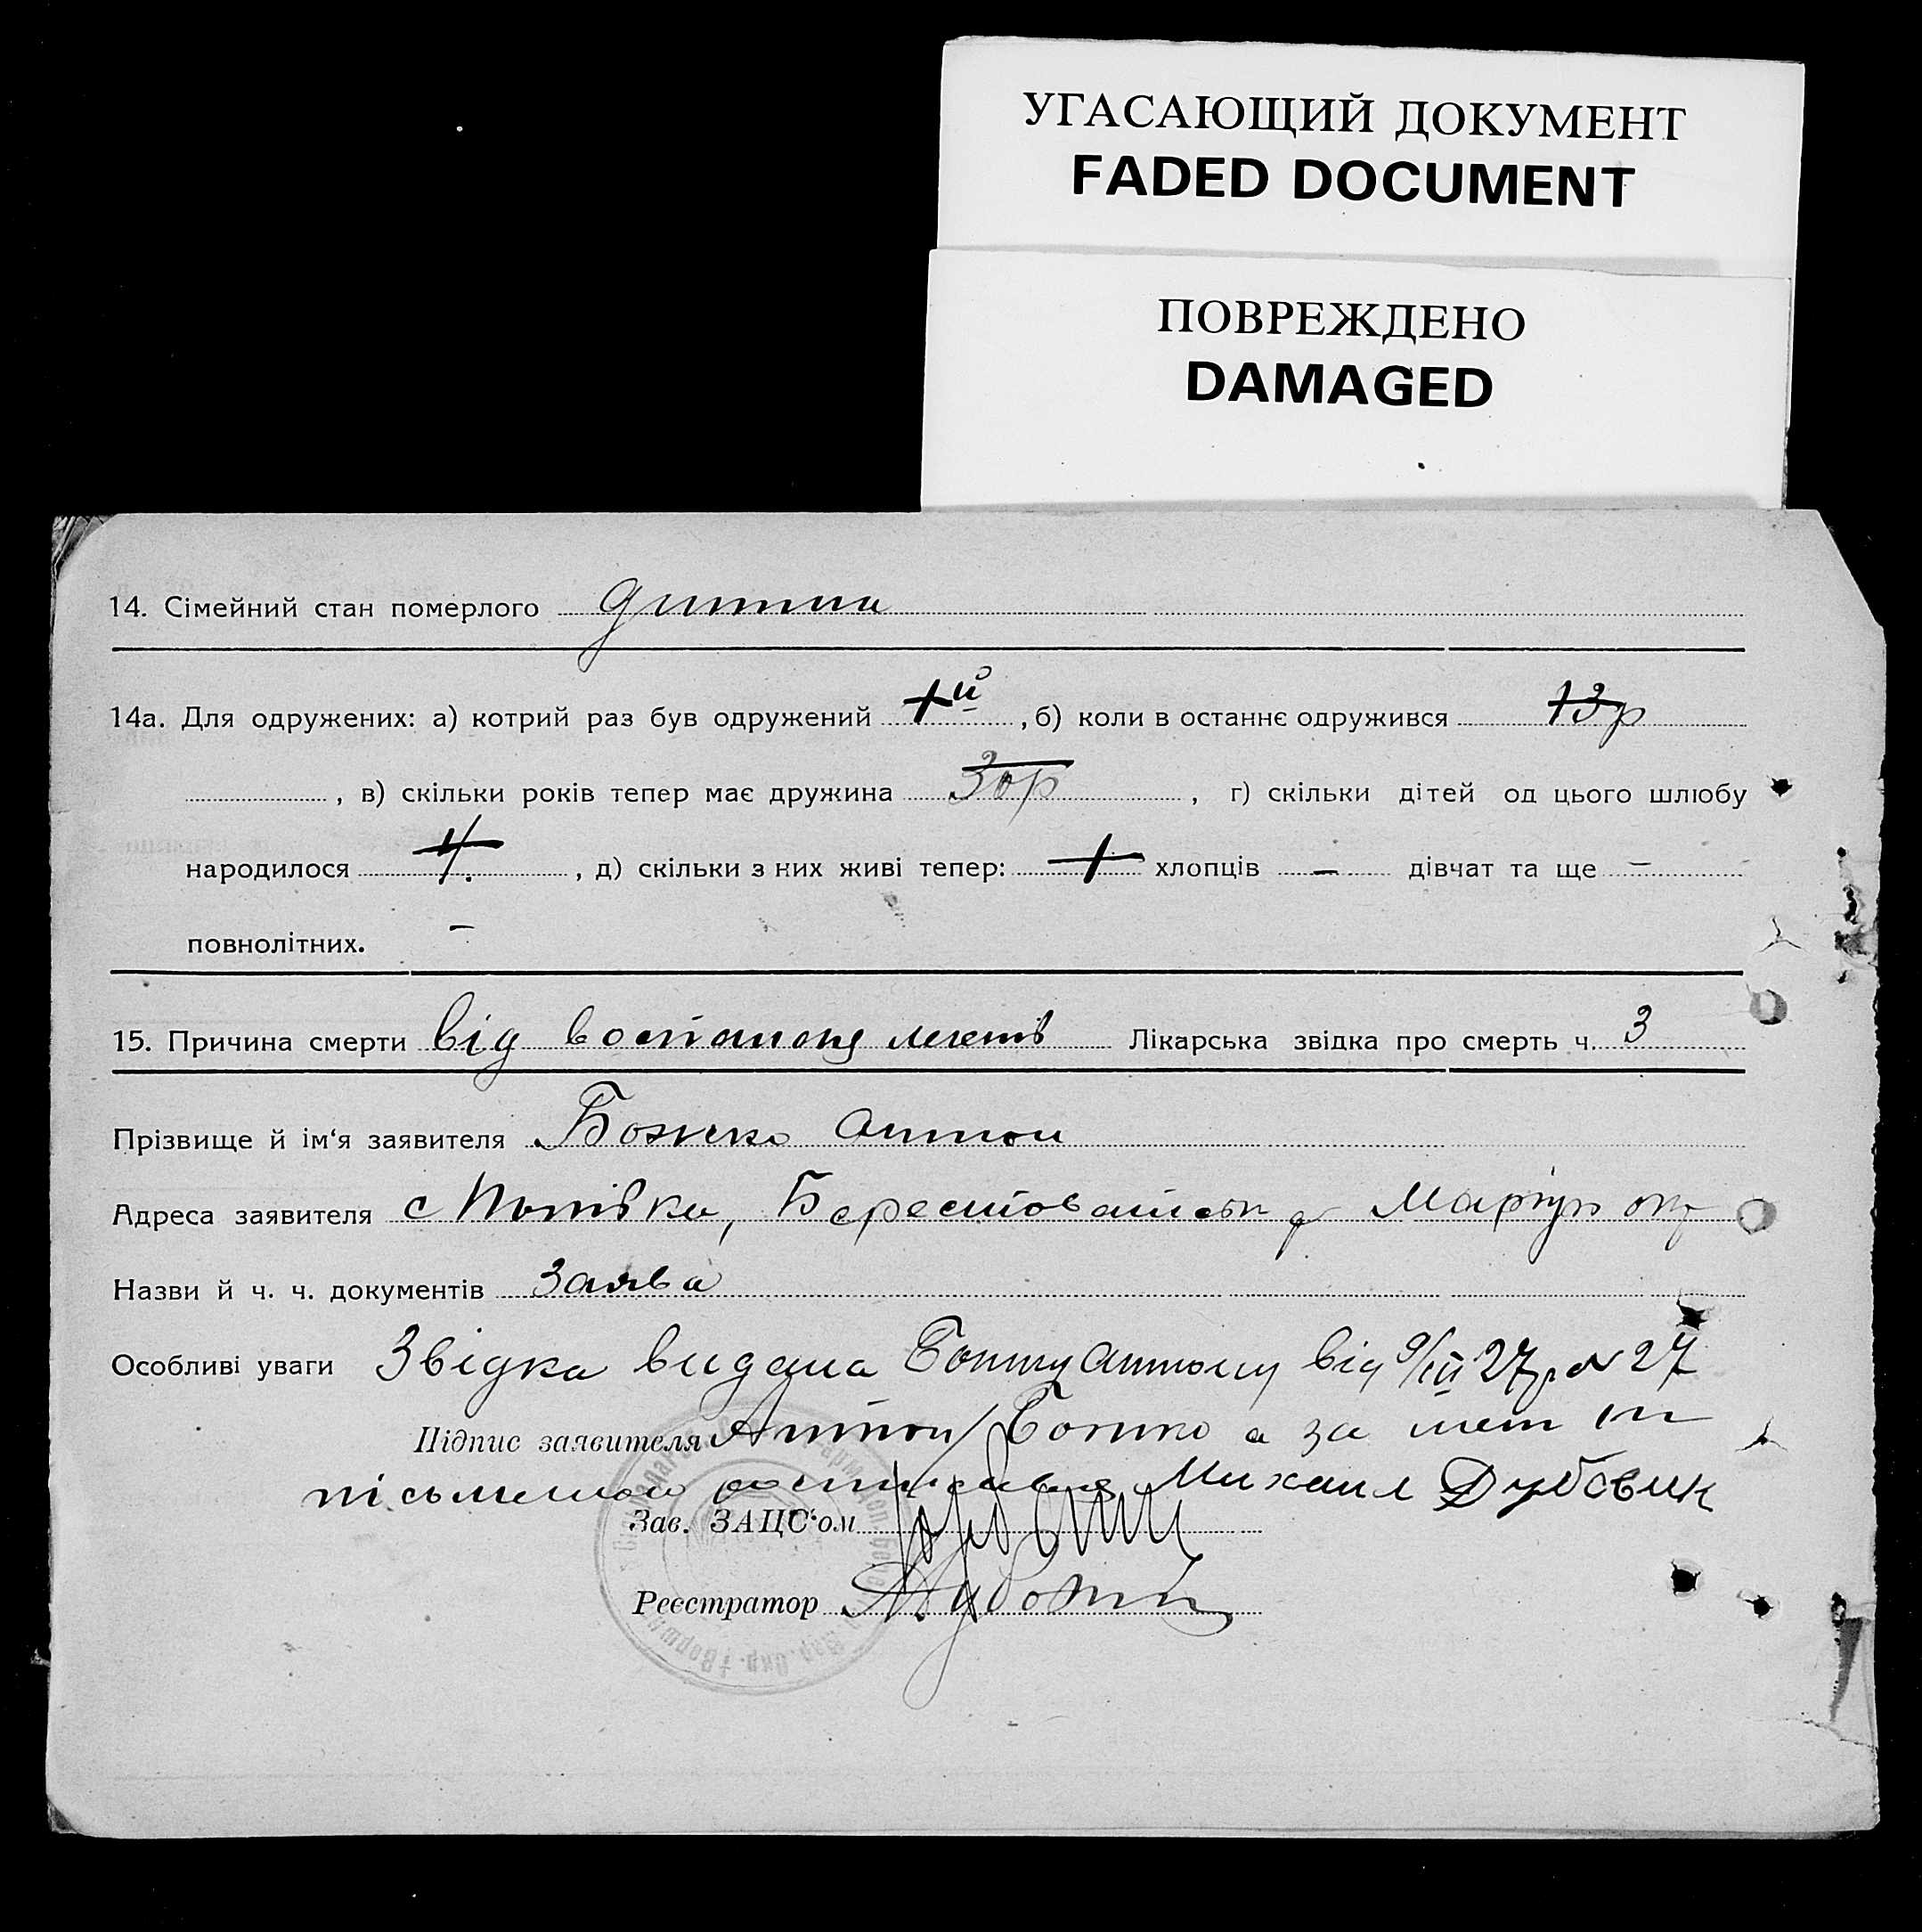 УГАСАЮЩИЙ ДОКУМЕНТ
FADED DOCUMENT
ПОВРЕЖДЕНО
DAMAGED
14. Сімейний стан померлого дитина
14а. Для одружених: а) котрий раз був одружений 1й, б) коли в останнє одружився 13р
, в) скільки років тепер має дружина 30р, г) скільки дітей од цього шлюбу
народилося 4. , д) скільки з них живі тепер: 1 хлопців — дівчат та ще —
повнолітних. —
15. Причина смерти від воспаленя легенів Лікарська звідка про смерть ч. 3
Прізвище й ім‘я заявителя Божко Антон
Адреса заявителя с Попівка, Берестоватськ р Маріуп окр
Назви й ч. ч. документів Заява
Особливі уваги Звідка видана Божку Антону від 9/III 27р. № 27
Підпис заявителя Антон Божко а за
Михаил Дубовик
Зав. ЗАЦС‘ом
Реєстратор